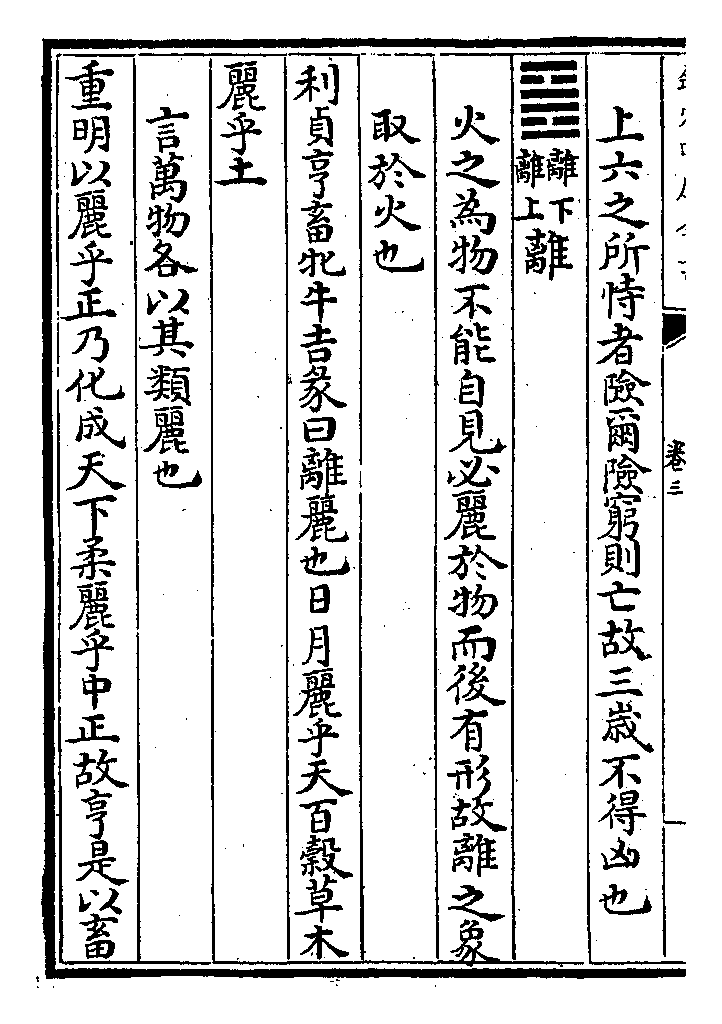 卷三
上六之所恃者險爾險窮則亡故三歲不得凶也
䷝離下離上離
火之為物不能自見必麗於物而後有形故離之象
取於火也
利貞亨畜牝牛吉彖曰離麗也日月麗乎天百穀草木
麗乎土
言萬物各以其類麗也
重明以麗乎正乃化成天下柔麗乎中正故亨是以畜